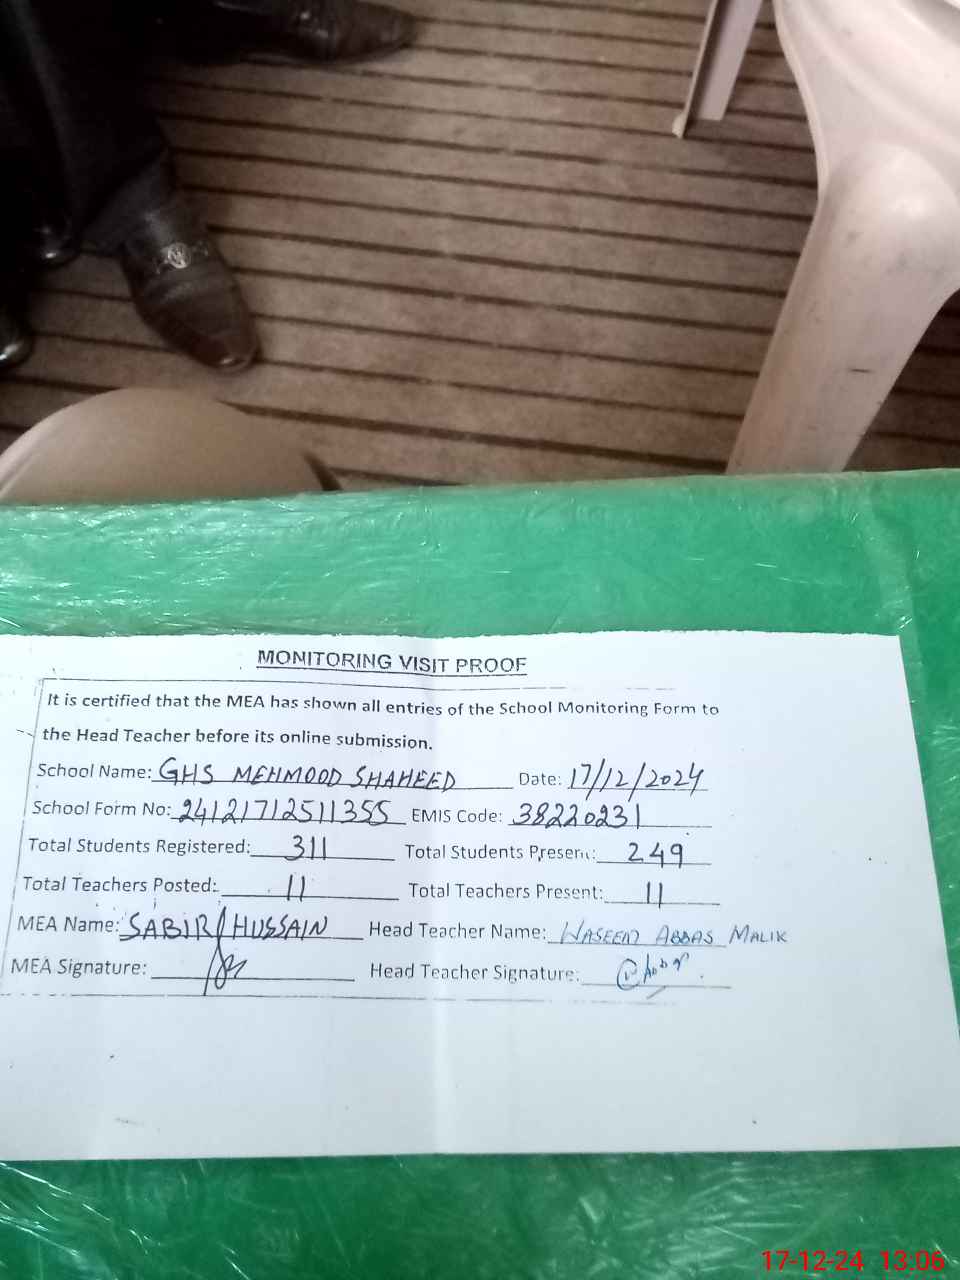 MONITORING VISIT PROOF
It is certified that the MEA has shown all entries of the School Monitoring Form to
the Head Teacher before its online submission.
School Name: GHS MEHMOOD SHAHEED Date: 17/12/2024
School Form No: 24121712511355 EMIS Code: 38220231
Total Students Registered: 311 Total Students Present: 249
Total Teachers Posted: 11 Total Teachers Present: 11
MEA Name: SABIR HUSSAIN Head Teacher Name: WASEEM ABBAS MALIK
MEA Signature: Head Teacher Signature:
17-12-24 13:06